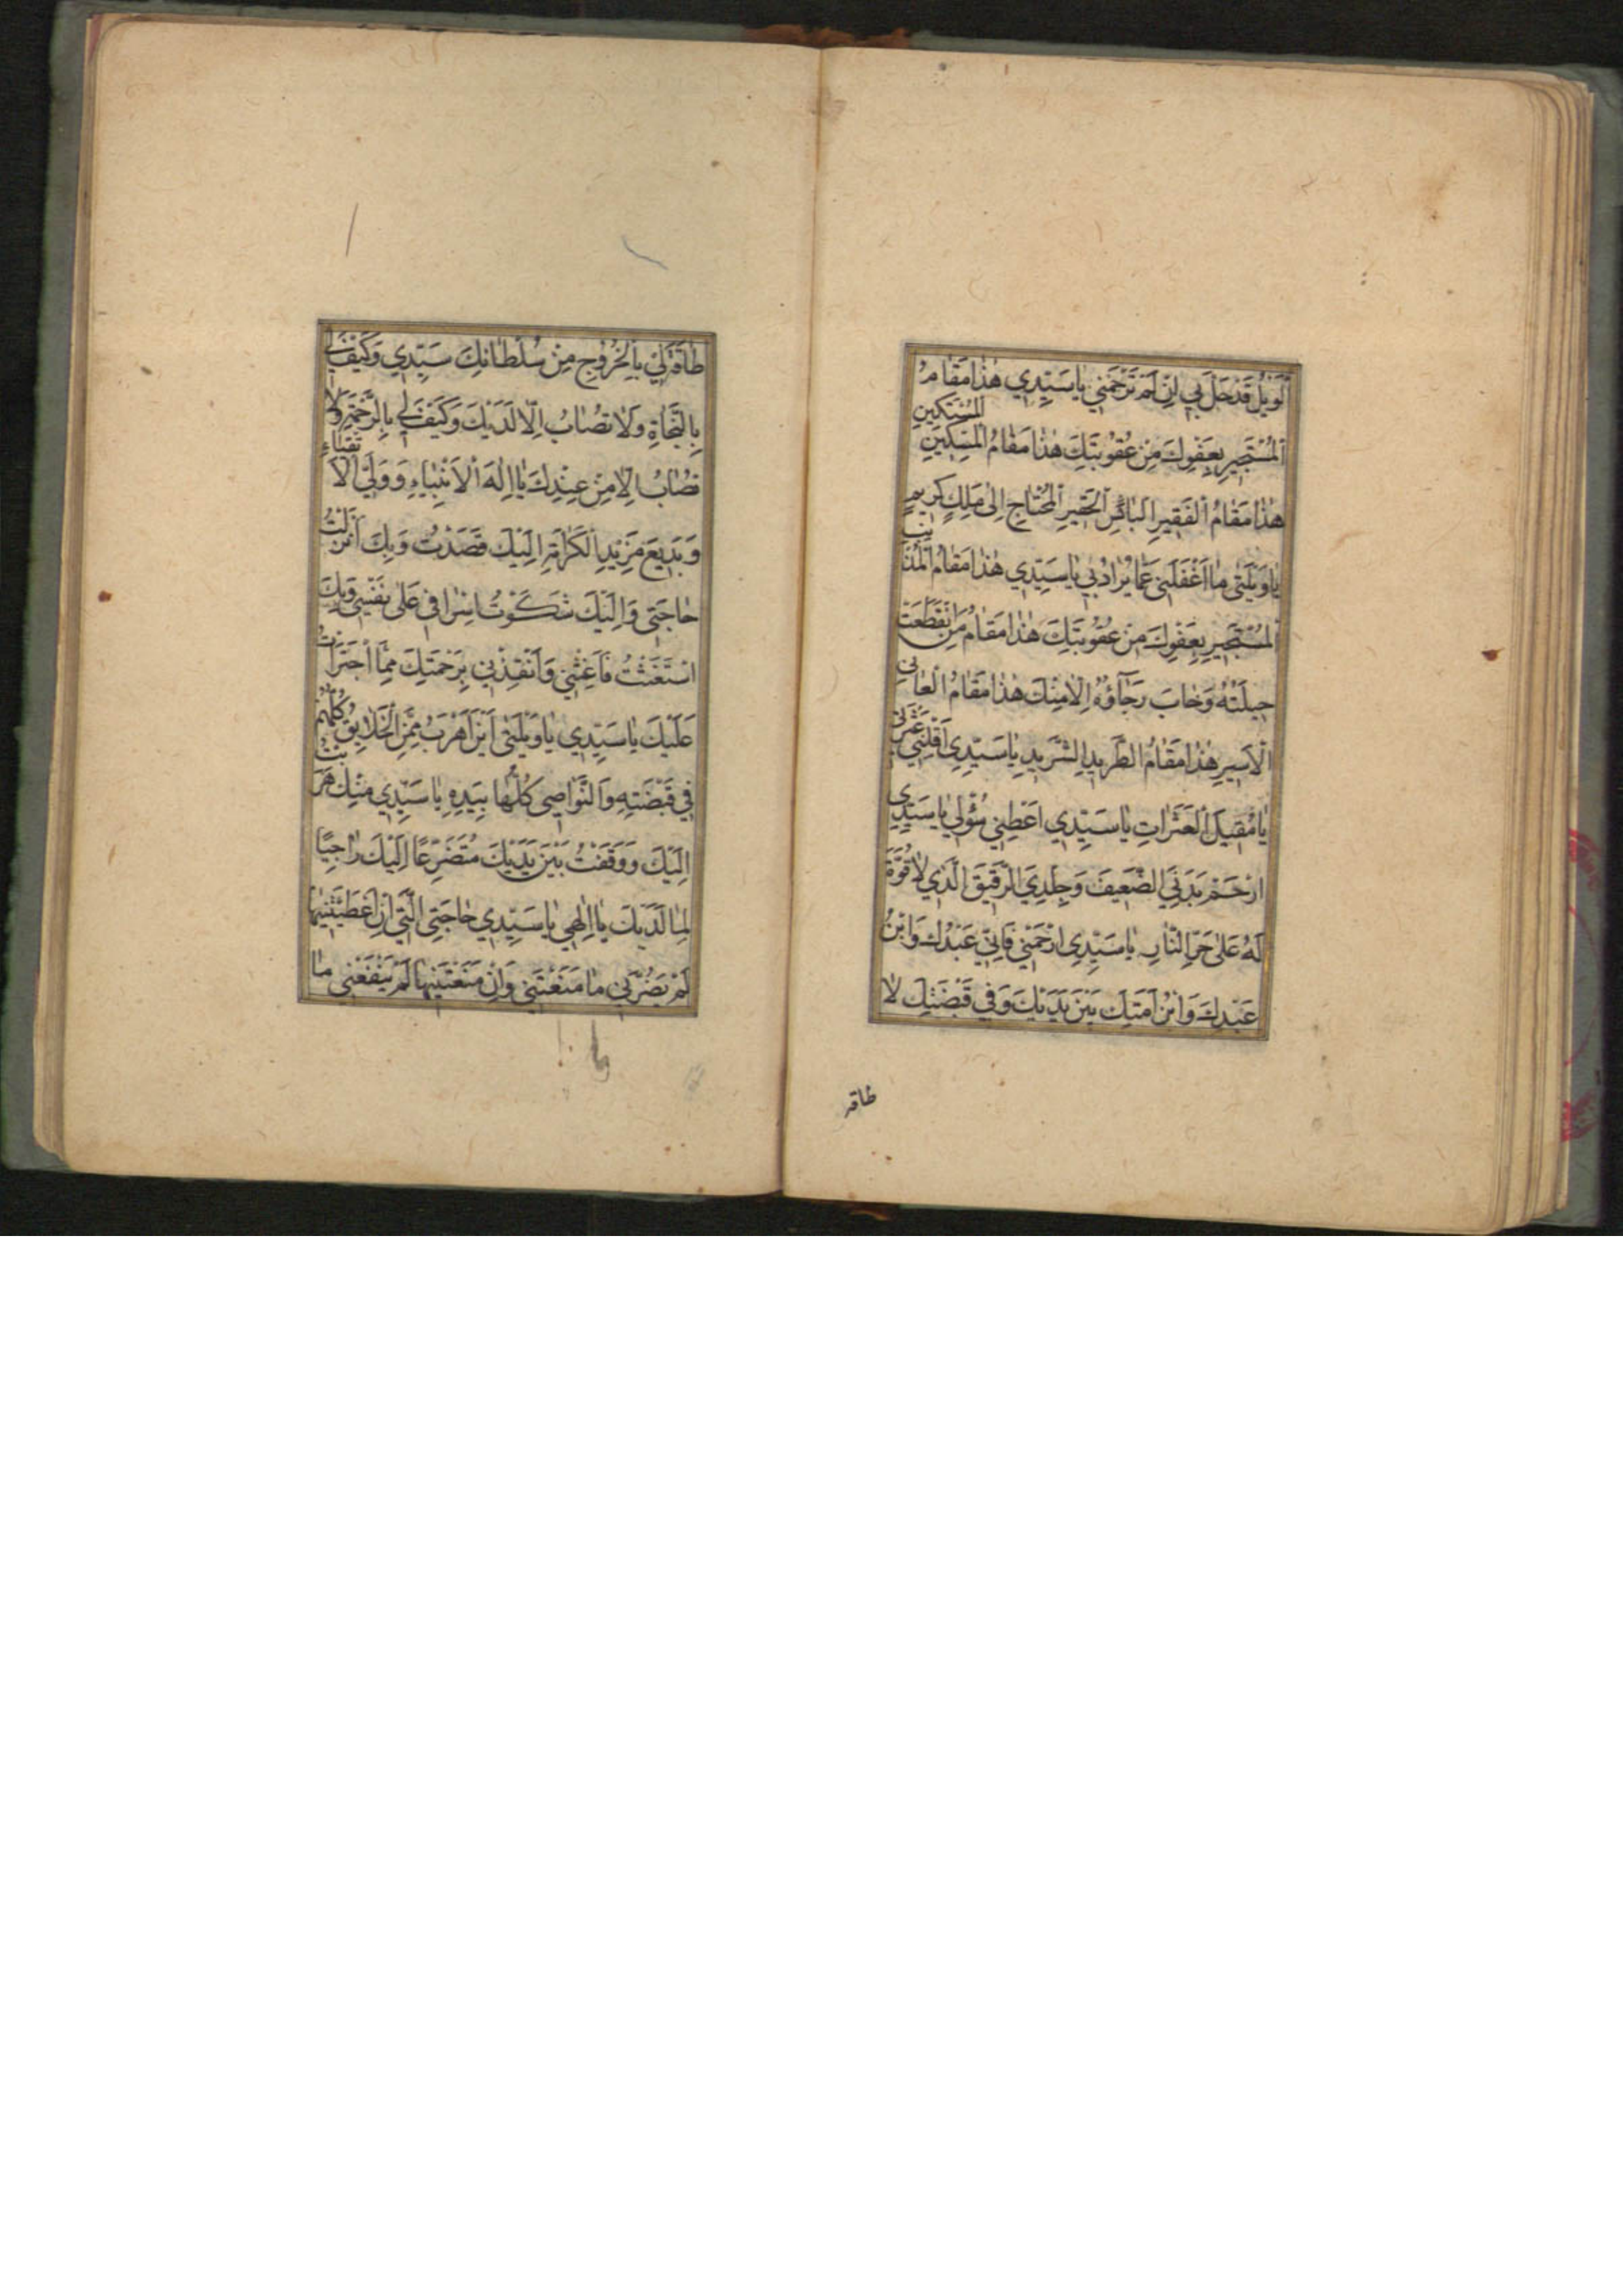 اَلْوَيْلُ قَدْ حَلَّ بِي اِنْ لَمْ تَرْحَمْنِي يٰا سَيِّدِي هٰذٰا مَقٰامُ
الْمُسْتَكِينِ
الْمُسْتَجِيرِ بِعَفْوِكَ مِنْ عُقُوبَتِكَ هٰذٰا مَقٰامُ الْمِسْكِينِ
هٰذٰا مَقٰامُ الْفَقِيرِ الْبٰائِسِ الْحَقِيرِ الْمُحْتٰاجِ اِلىٰ مَلِكٍ كَرِيمٍ
يٰا وَيْلَتىٰ مٰا اَغْفَلَنِي عَمّٰا يُرٰادُ بِي يٰا سَيِّدِي هٰذٰا مَقٰامُ الْمُذْنِبِ
الْمُسْتَجِيرِ بِعَفْوِكَ مِنْ عُقُوبَتِكَ هٰذٰا مَقٰامُ مَنِ انْقَطَعَتْ
حِيلَتُهُ وَخٰابَ رَجٰآؤُهُ اِلّٰا مِنْكَ هٰذٰا مَقٰامُ الْعٰانِي
الْاَسِيرِ هٰذٰا مَقٰامُ الطَّرِيدِ الشَّرِيدِ يٰا سَيِّدِي اَقِلْنِي عَثْرَتِي
يٰا مُقِيلَ الْعَثَرٰاتِ يٰا سَيِّدِي اَعْطِنِي سُؤْلِي يٰا سَيِّدِي
ارْحَمْ بَدَنِيَ الضَّعِيفَ وَجِلْدِيَ الرَّقِيقَ الَّذِي لٰا قُوَّةَ
لَهُ عَلىٰ حَرِّ النّٰارِ يٰا سَيِّدِي ارْحَمْنِي فَاِنِّي عَبْدُكَ وَابْنُ
عَبْدِكَ وَابْنُ اَمَتِكَ بَيْنَ يَدَيْكَ وَفِي قَبْضَتِكَ لٰا
طاقه
طٰاقَةَ لِي بِالْخُرُوجِ مِنْ سُلْطٰانِكَ سَيِّدِي وَكَيْفَ لِي
بِالنَّجٰاةِ وَلٰا تُصٰابُ اِلّٰا لَدَيْكَ وَكَيْفَ لِي بِالرَّحْمَةِ وَلٰا
تُصٰابُ اِلّٰا مِنْ عِنْدِكَ يٰا اِلٰهَ الْاَنْبِيٰاءِ وَوَلِيَّ الْاَتْقِيٰاءِ
وَبَدِيعَ مَزِيدِ الْكَرٰامَةِ اِلَيْكَ قَصَدْتُ وَبِكَ اَنْزَلْتُ
حٰاجَتِي وَاِلَيْكَ شَكَوْتُ اِسْرٰافِي عَلىٰ نَفْسِي وَبِكَ
اسْتَغَثْتُ فَاَغِثْنِي وَاَنْقِذْنِي بِرَحْمَتِكَ مِمَّا اجْتَرَأْتُ
عَلَيْكَ يٰا سَيِّدِي يٰا وَيْلَتىٰ اَيْنَ اَهْرُبُ مِمَّنِ الْخَلٰايِقُ كُلُّهُمْ
فِي قَبْضَتِهِ وَالنَّوٰاصِي كُلُّهٰا بِيَدِهِ يٰا سَيِّدِي مِنْكَ هَرَبْتُ
اِلَيْكَ وَوَقَفْتُ بَيْنَ يَدَيْكَ مُتَضَرِّعًا اِلَيْكَ رٰاجِيًا
لِمٰا لَدَيْكَ يٰا اِلٰهِي يٰا سَيِّدِي حٰاجَتِيَ الَّتِي اِنْ اَعْطَيْتَنِيهٰا
لَمْ يَضُرَّنِي مٰا مَنَعْتَنِي وَاِنْ مَنَعْتَنِيهٰا لَمْ يَنْفَعْنِي مٰا